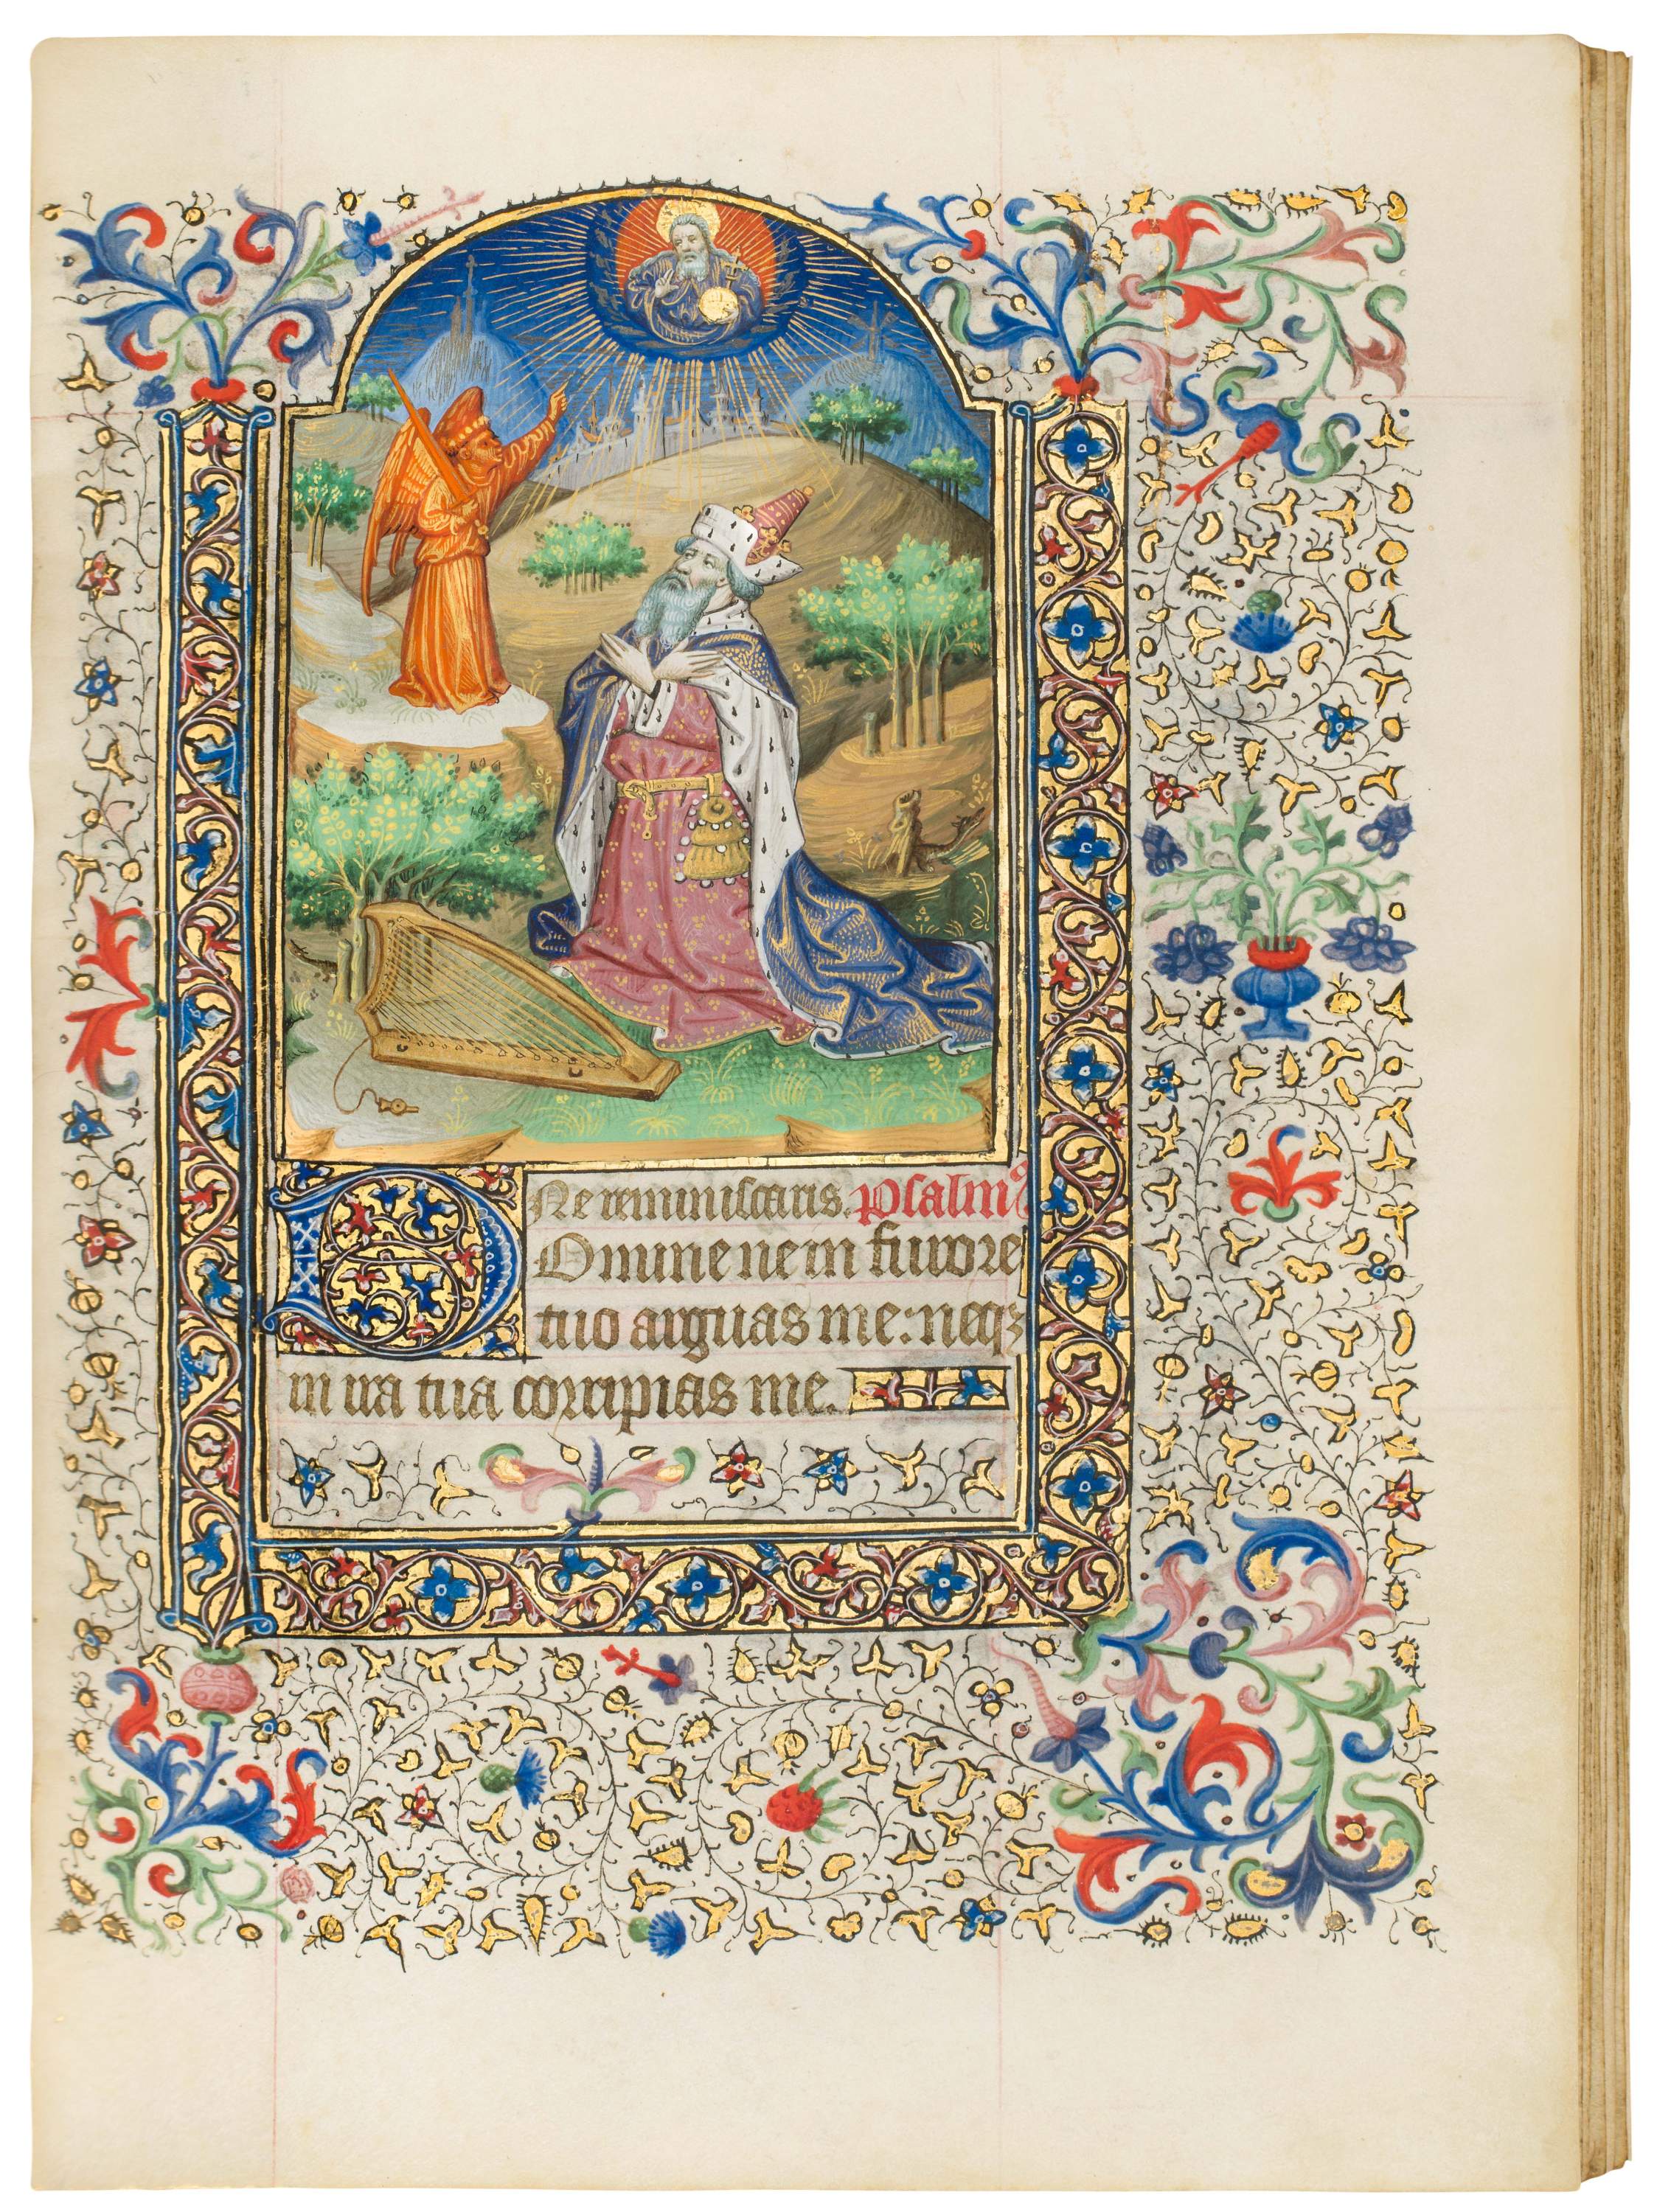 Ne reminiscaris. Psalmꝰ
Domine ne in furore
tuo arguas me: neqꝫ
in ira tua corripias me.